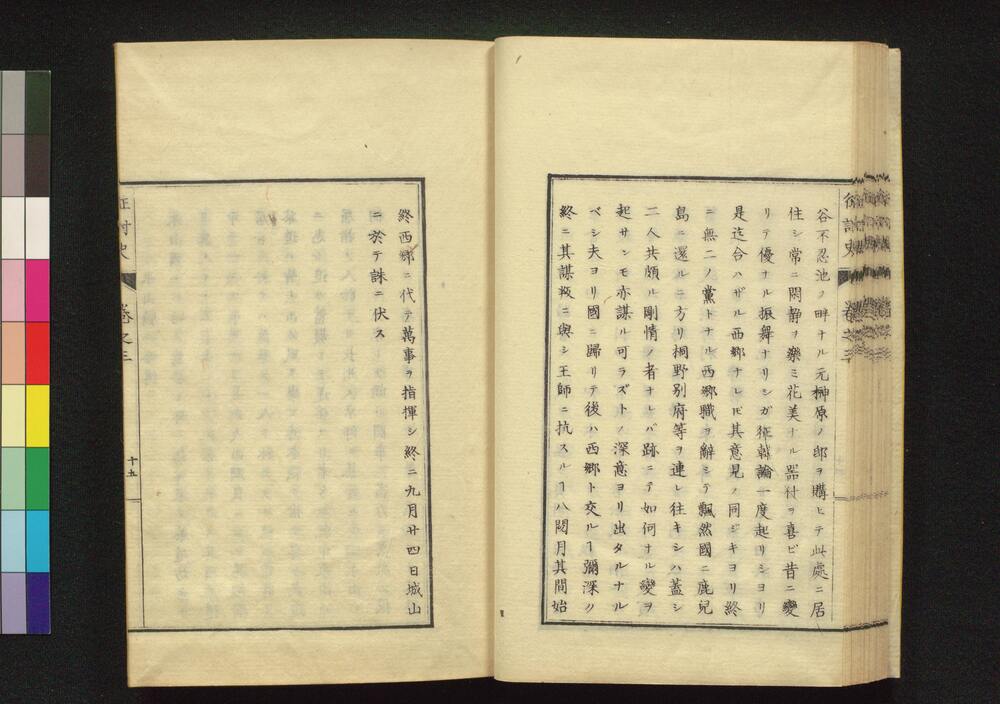 谷不忍池ノ畔ナル元榊原ノ邸ヲ購ヒテ此處ニ居
住シ常ニ閑静ヲ樂ミ花美ナル器什ヲ喜ビ昔ニ變
リテ優ナル振舞ナリシガ征韓論一度起リシヨリ
是迄合ハザル西郷ナレ𪜈其意見ノ同ジキヨリ終
ニ無二ノ黨トナル西郷職ヲ辭シテ飄然國ニ鹿兒
島ニ還ルニ方リ桐野别府等ヲ連レ往キシハ蓋シ
二人共頗ル剛情ノ者ナレバ跡ニテ如何ナル變ヲ
起サンモ亦謀ル可ラズトノ深意ヨリ出タルナル
ベシ夫ヨリ國ニ歸リテ後ハ西郷ト交ルヿ彌深ク
終ニ其謀叛ニ與シ王師ニ抗スルヿ八閲月其間始
終西郷ニ代テ萬事ヲ指揮シ終ニ九月廿四日城山
ニ於テ誅ニ伏ス
征討史 卷之三
十五